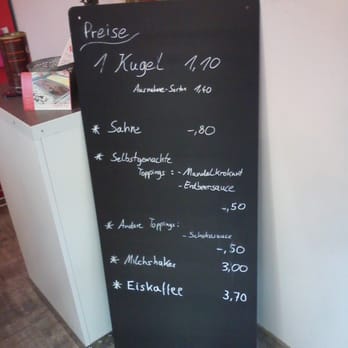 Preise
1 Kugel 1,10
Ausnahme-Sorten 1,40
* Sahne -,80
* Selbstgemachte
Toppings: - Mandelkrokant
- Erdbeersauce
-,50
* Andere Toppings:
- Schokosauce
-,50
* Milchshakes 3,00
* Eiskaffee 3,70